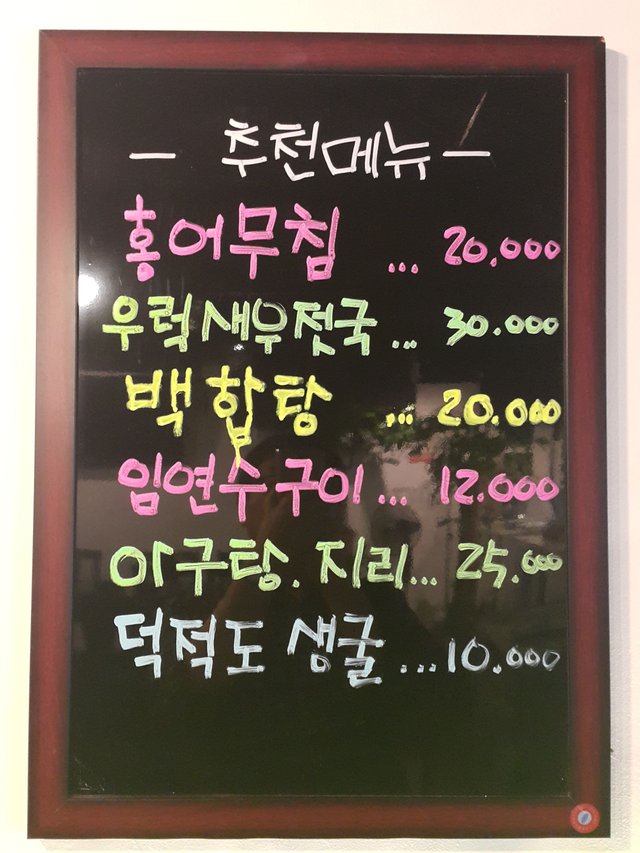 - 추천메뉴 -
홍어무침 ... 20,000
우럭새우젓국 ... 30.000
백합탕 ... 20.000
임연수구이 ... 12.000
아구탕. 지리... 25.000
덕적도 생굴 ...10.000